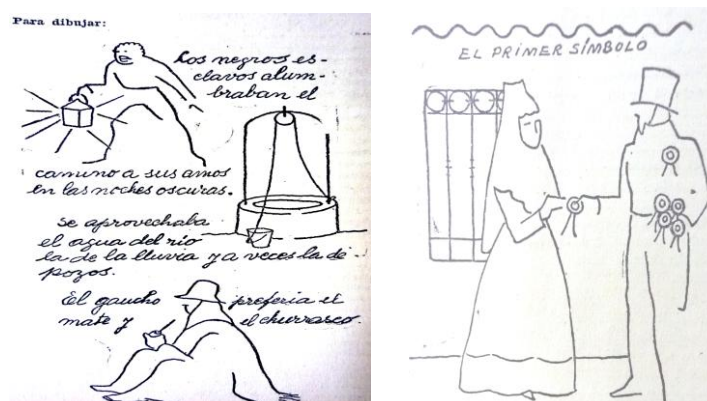 Para dibujar:
Los negros es-
clavos alum-
braban el
camino a sus amos
en las noches oscuras.
Se aprovechaba
el agua del río
la de la lluvia y a veces la de
pozos.
El gaucho prefería el
mate y el churrasco.
EL PRIMER SÍMBOLO